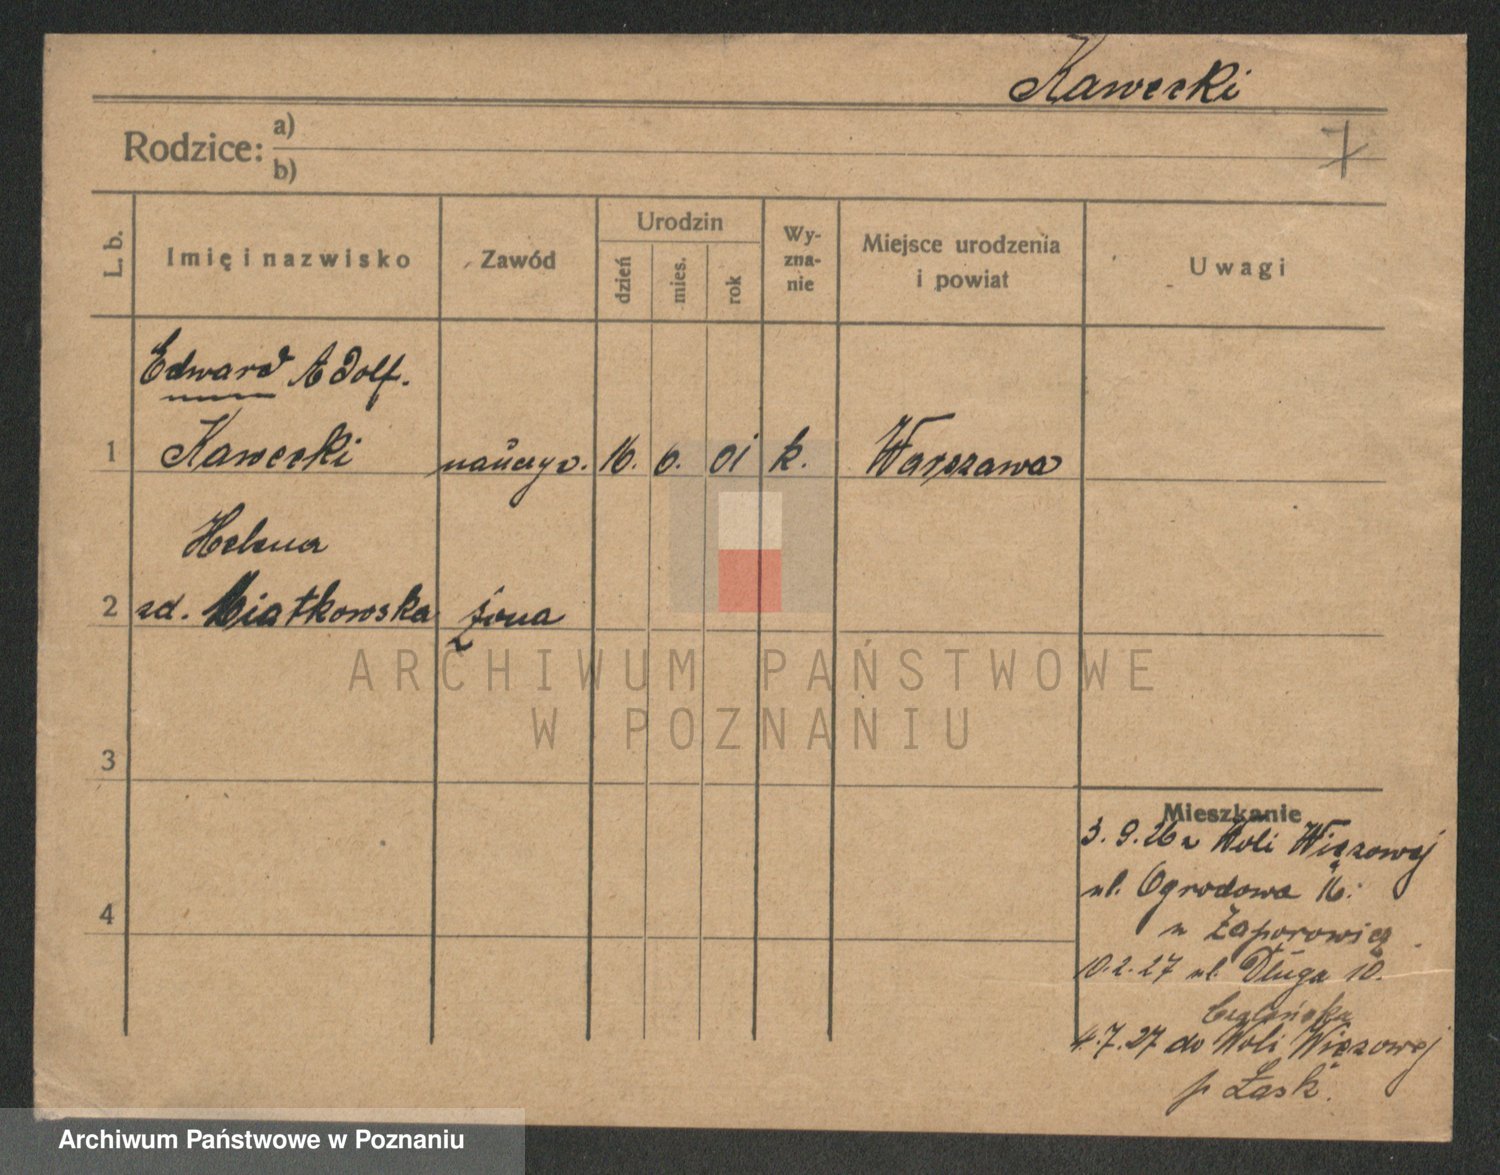 Kawecki
Rodzice:
a)
b)
7
L. b.
Imię i nazwisko
Zawód
Urodzin
dzień
mies.
rok
Wy-
zna-
nie
Miejsce urodzenia
i powiat
Uwagi
Edward Adolf.
1 Kawecki nauczyc. 16. 6. 01 k. Warszawa
Helena
2 zd. Miatkowska żona
3
4
Mieszkanie
3. 9. 26 z Woli Wiązowej
ul. Ogrodowa 16.
10. 2. 27 ul. Długa 10.
4. 7. 27 do Woli Wiązowej
p Łask.
ARCHIWUM PAŃSTWOWE
W POZNANIU
Archiwum Państwowe w Poznaniu